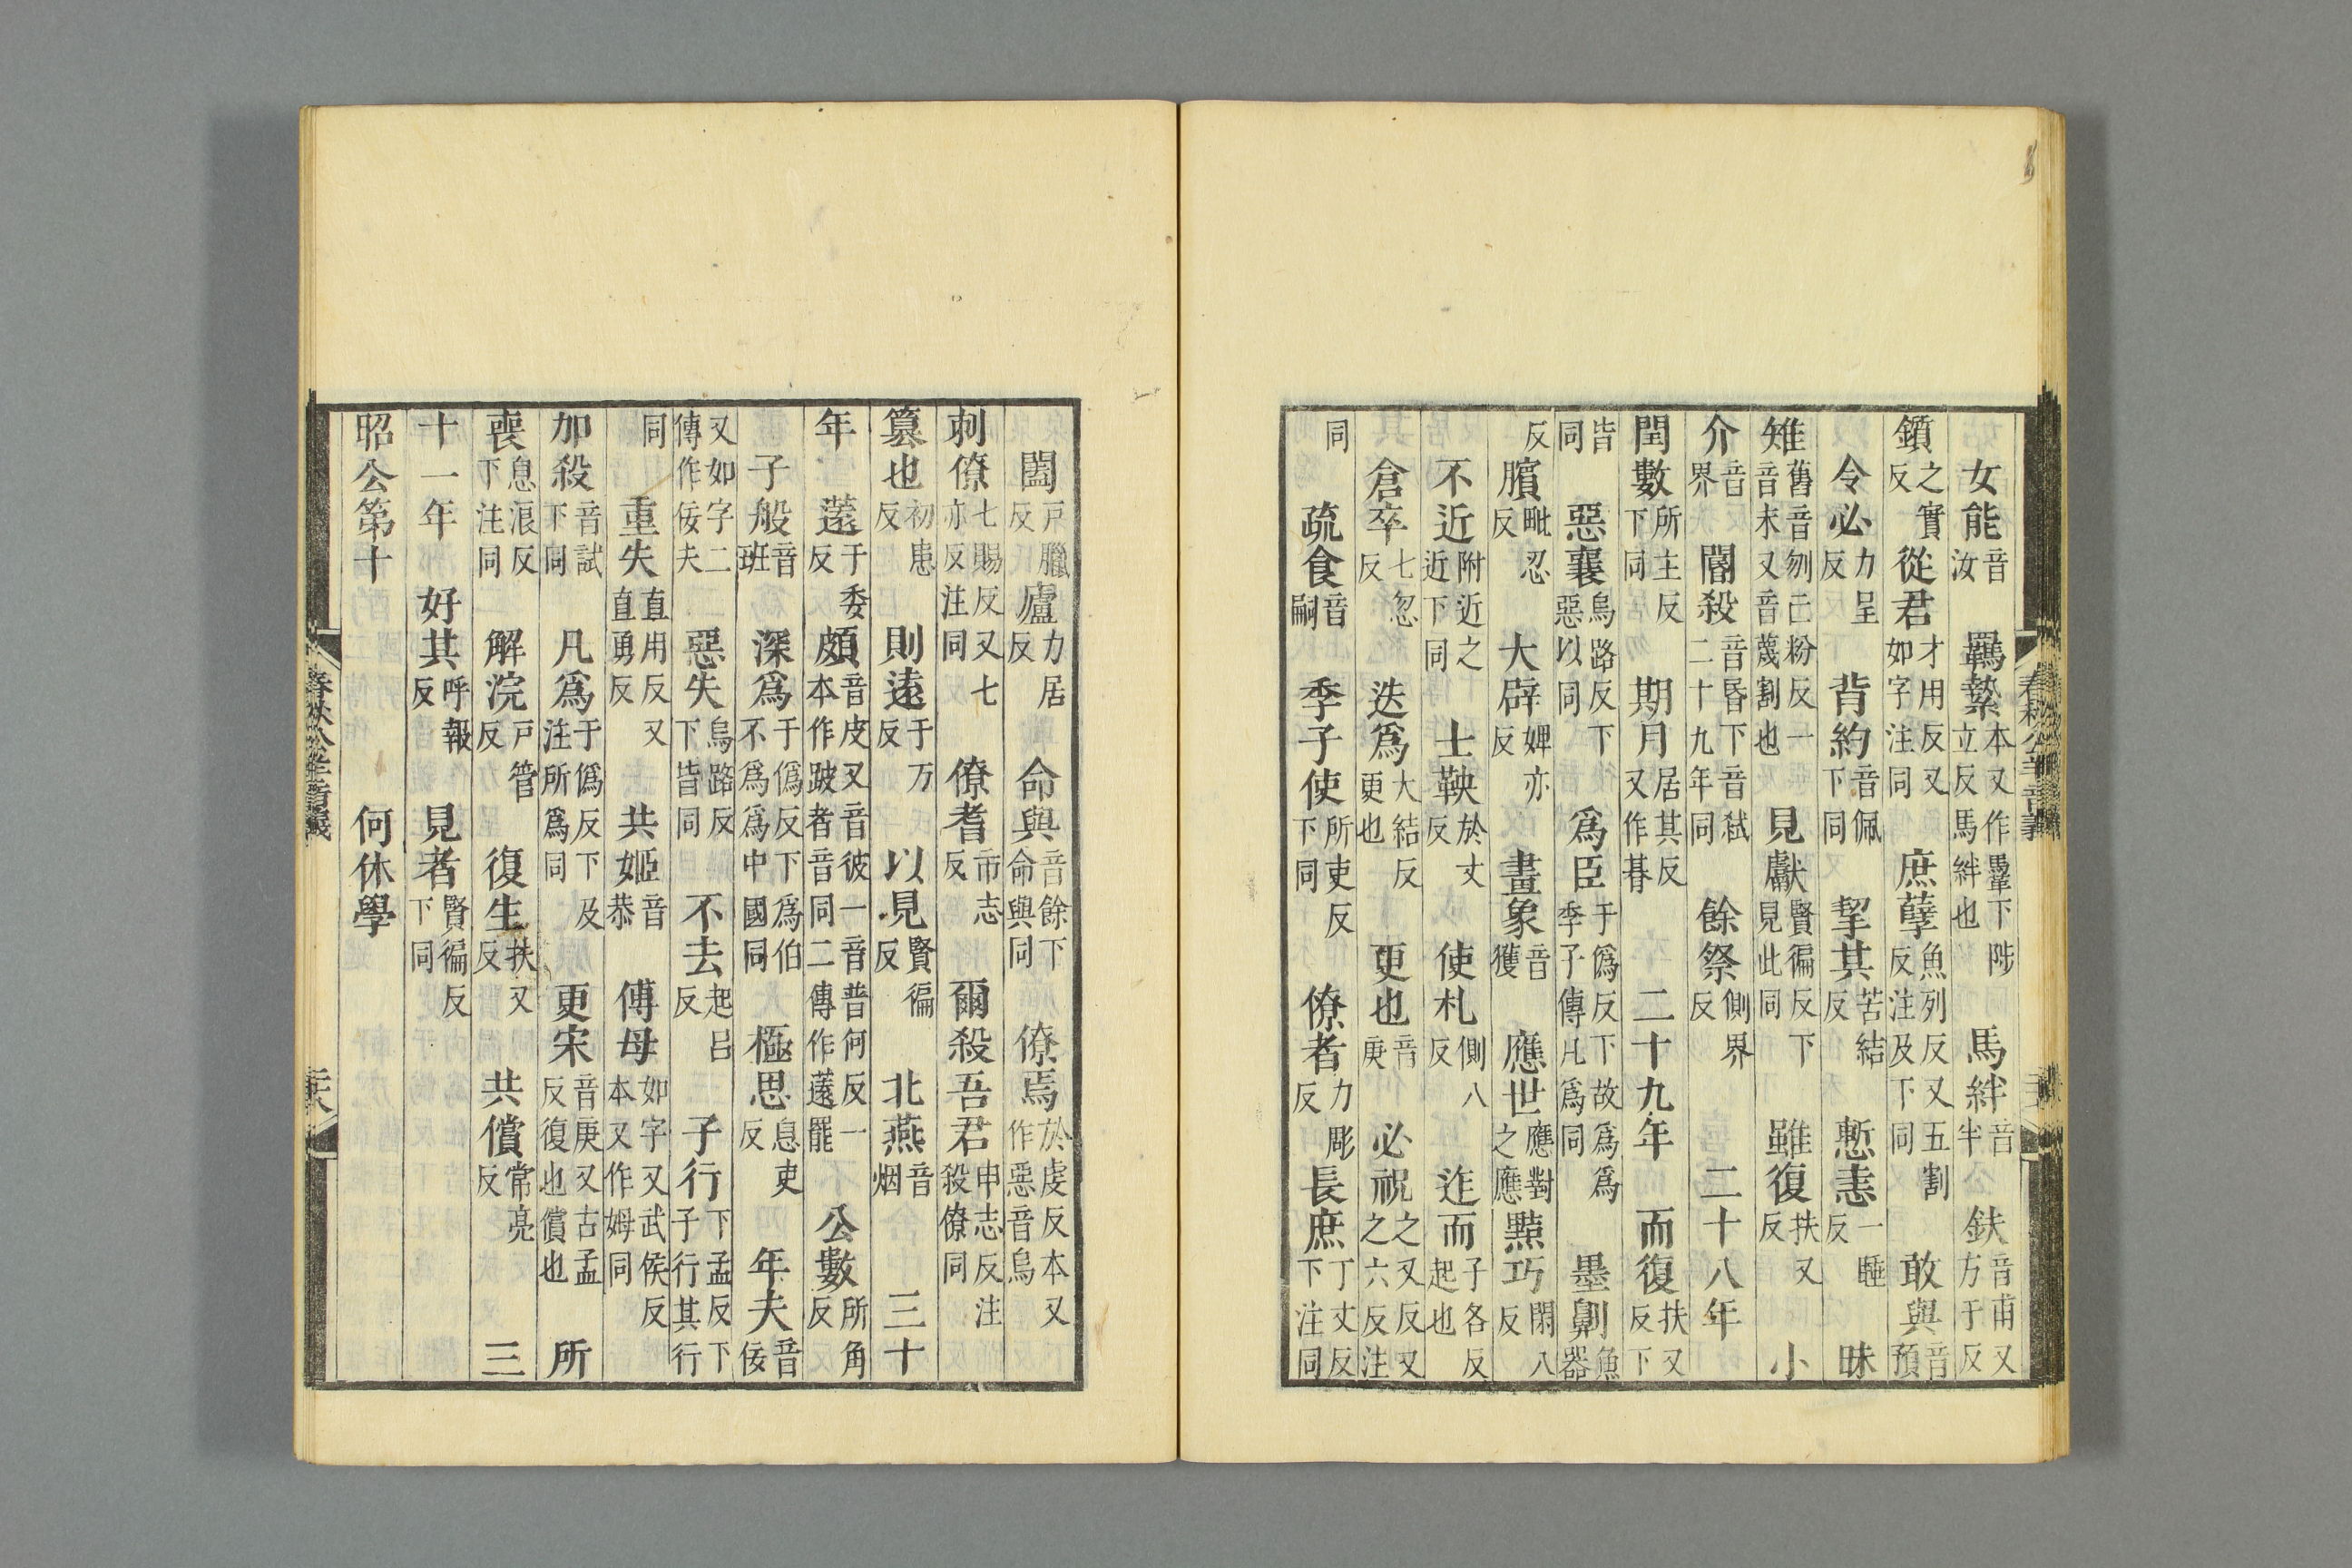 女能音汝 羈縶本又作馽下陟立反馬絆也 馬絆音半 鈇音甫又方于反
鑕之實反 從君才用反又如字注同 庶孽魚列反又五割反注及下同 敢與音預
令必力呈反 背約音佩下同 挈其苦結反 慙恚一睡反 昧
雉舊音刎亡粉反一音末又音蔑割也 見獻賢徧反下見此同 雖復扶又反 小
介音界 閽殺音昏下音弑二十九年同 餘祭側界反 二十八年
閏數所主反下同 期月居其反又作朞 二十九年 而復扶又反下
皆同 惡襄烏路反下惡以同 爲臣于僞反下故爲爲季子傳凡爲同 墨劓魚器
反 臏毗忍反 大辟婢亦反 畫象音獲 應世應對之應 黠巧閑八反
不近附近之近下同 士鞅於丈反 使札側八反 迮而子各反起也
倉卒七忽反 迭爲大結反更也 更也音庚 必祝之又反又之六反注
同 疏食音嗣 季子使所吏反下同 僚者力彫反 長庶丁丈反下注同
闔戸臘反 廬力居反 命與音餘下命與同 僚焉於虔反本又作惡音烏
刺僚七賜反又七亦反注同 僚耆市志反 爾殺吾君申志反注殺僚同
篡也初患反 則遠于万反 以見賢徧反 北燕音烟 三十
年 薳于委反 頗音皮又音彼一音普何反一本作跛者音同二傳作薳罷 公數所角反
子般音班 深爲于僞反下爲伯不爲爲中國同 極思息吏反 年夫音佞
又如字二傳作佞夫 惡失烏路反下皆同 不去起呂反 子行下孟反下子行其行
同 重失直用反又直勇反 共姬音恭 傅母如字又武侯反本又作姆同
加殺音試下同 凡爲于僞反下及注所爲同 更宋音庚又古孟反復也償也 所
喪息浪反下注同 解浣戸管反 復生扶又反 共償常亮反 三
十一年 好其呼報反 見者賢徧反下同
昭公第十 何休學
春秋公羊音義